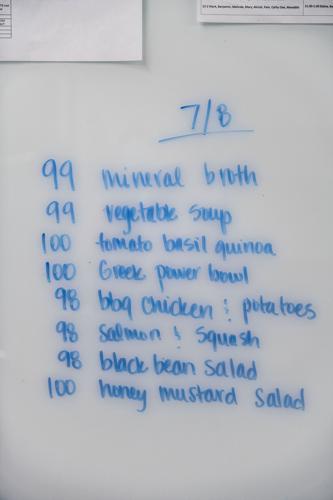 7/8
99 mineral broth
99 vegetable soup
100 tomato basil quinoa
100 Greek power bowl
98 bbq chicken & potatoes
98 salmon & squash
98 black bean salad
100 honey mustard salad